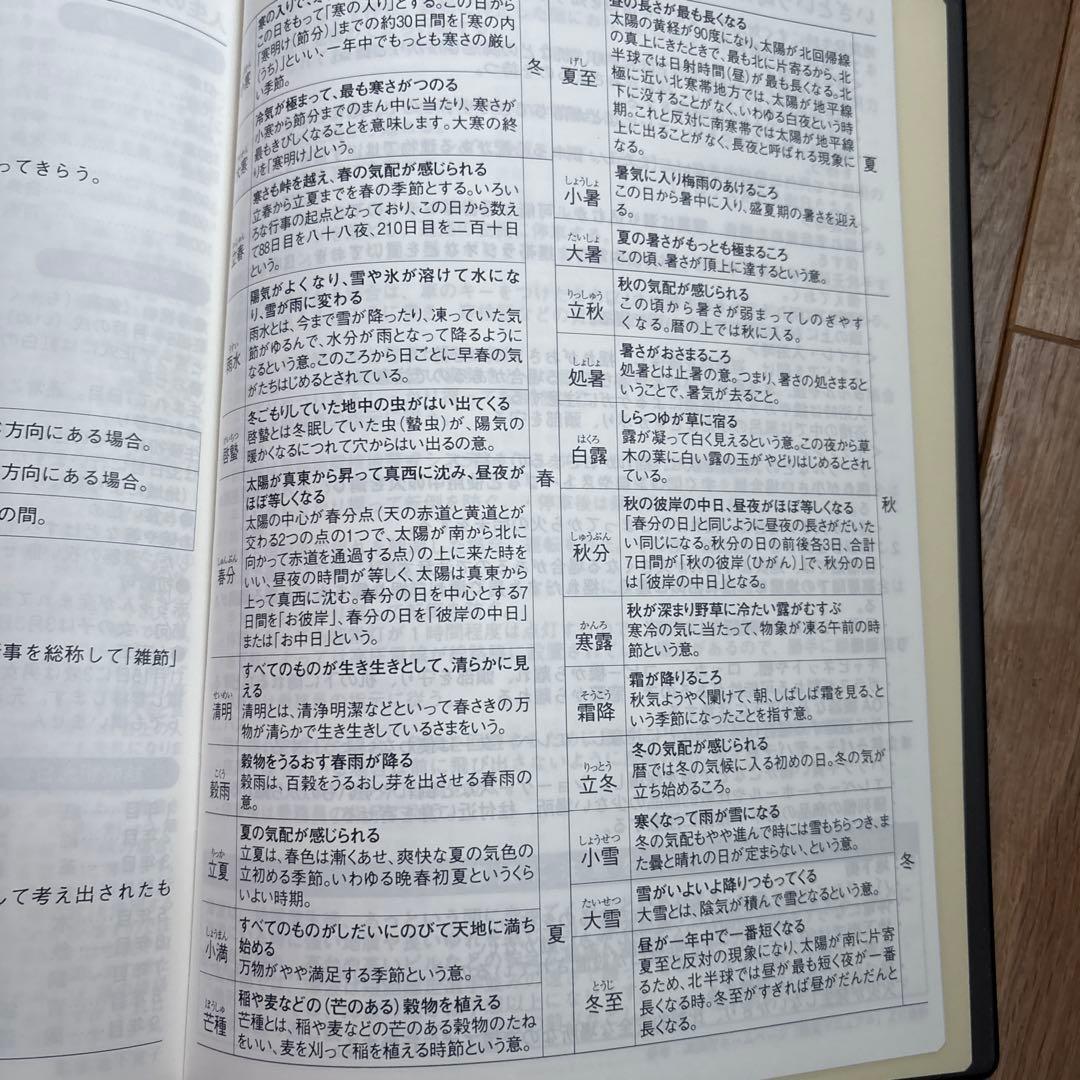 ってきらう。
方向にある場合。
方向にある場合。
の間。
事を総称して「雑節」
して考え出されたも
寒の入りで、
この日をもって「寒の入り」とする。この日から
「寒明け(節分)」までの約30日間を「寒の内
(うち)」といい、一年中でもっとも寒さの厳し
い季節。
寒
冷気が極まって、最も寒さがつのる
小寒から節分までのまん中に当たり、寒さが
最もきびしくなることを意味します。大寒の終
りを「寒明け」という。
冬
立春
寒さも峠を越え、春の気配が感じられる
立春から立夏までを春の季節とする。いろい
ろな行事の起点となっており、この日から数え
て88日目を八十八夜、210日目を二百十日
という。
雨水
陽気がよくなり、雪や氷が溶けて水にな
り、雪が雨に変わる
雨水とは、今まで雪が降ったり、凍っていた気
節がゆるんで、水分が雨となって降るように
なるという意。このころから日ごとに早春の気
がたちはじめるとされている。
啓蟄
冬ごもりしていた地中の虫がはい出てくる
啓蟄とは冬眠していた虫(蟄虫)が、陽気の
暖かくなるにつれて穴からはい出るの意。
しゅんぶん
春分
太陽が真東から昇って真西に沈み、昼夜が
ほぼ等しくなる
太陽の中心が春分点(天の赤道と黄道とが
交わる2つの点の1つで、太陽が南から北に
向かって赤道を通過する点)の上に来た時を
いい、昼夜の時間が等しく、太陽は真東から
上って真西に沈む。春分の日を中心とする7
日間を「お彼岸」、春分の日を「彼岸の中日」
または「お中日」という。
春
せいめい
清明
すべてのものが生き生きとして、清らかに見
える
清明とは、清浄明潔などといって春さきの万
物が清らかで生き生きしているさまをいう。
こくう
穀雨
穀物をうるおす春雨が降る
穀雨は、百穀をうるおし芽を出させる春雨の
意。
りっか
立夏
夏の気配が感じられる
立夏は、春色は漸くあせ、爽快な夏の気色の
立初める季節。いわゆる晩春初夏というくら
いよい時期。
しょうまん
小満
すべてのものがしだいにのびて天地に満ち
始める
万物がやや満足する季節という意。
夏
ぼうしゅ
芒種
稲や麦などの(芒のある)穀物を植える
芒種とは、稲や麦などの芒のある穀物のたね
をいい、麦を刈って稲を植える時節という意。
げし
夏至
昼の長さが最も長くなる
太陽の黄経が90度になり、太陽が北回帰線
の真上にきたときで、最も北に片寄るから、北
半球では日射時間(昼)が最も長くなる。北
極に近い北寒帯地方では、太陽が地平線
下に没することがなく、いわゆる白夜という時
期。これと反対に南寒帯では太陽が地平線
上に出ることがなく、長夜と呼ばれる現象に
なる。
夏
しょうしょ
小暑
暑気に入り梅雨のあけるころ
この日から暑中に入り、盛夏期の暑さを迎え
る。
たいしょ
大暑
夏の暑さがもっとも極まるころ
この頃、暑さが頂上に達するという意。
りっしゅう
立秋
秋の気配が感じられる
この頃から暑さが弱まってしのぎやす
くなる。暦の上では秋に入る。
しょしょ
処暑
暑さがおさまるころ
処暑とは止暑の意。つまり、暑さの処さまると
いうことで、暑気が去ること。
はくろ
白露
しらつゆが草に宿る
露が凝って白く見えるという意。この夜から草
木の葉に白い露の玉がやどりはじめるとされ
ている。
しゅうぶん
秋分
秋の彼岸の中日、昼夜がほぼ等しくなる
「春分の日」と同じように昼夜の長さがだいた
い同じになる。秋分の日の前後各3日、合計
7日間が「秋の彼岸(ひがん)」で、秋分の日
は「彼岸の中日」となる。
秋
かんろ
寒露
秋が深まり野草に冷たい露がむすぶ
寒冷の気に当たって、物象が凍る午前の時
節という意。
そうこう
霜降
霜が降りるころ
秋気ようやく闌けて、朝、しばしば霜を見る、と
いう季節になったことを指す意。
りっとう
立冬
冬の気配が感じられる
暦では冬の気候に入る初めの日。冬の気が
立ち始めるころ。
しょうせつ
小雪
寒くなって雨が雪になる
冬の気配もやや進んで時には雪もちらつき、ま
た曇と晴れの日が定まらない、という意。
たいせつ
大雪
雪がいよいよ降りつもってくる
大雪とは、陰気が積んで雪となるという意。
冬
とうじ
冬至
昼が一年中で一番短くなる
夏至と反対の現象になり、太陽が南に片寄
るため、北半球では昼が最も短く夜が一番
長くなる時。冬至がすぎれば昼がだんだんと
長くなる。